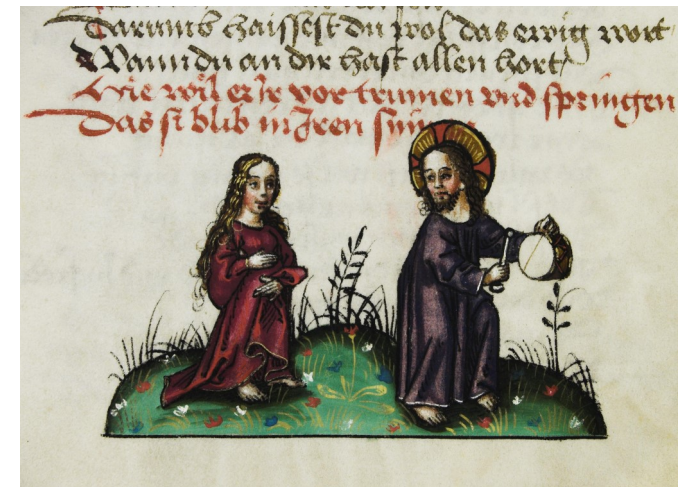 Darumb haissest du wol das ewig wort
Wann du an dir hast allen hort
Hie wil er Ir vor trumen vnd springen
Das si blib in Iren